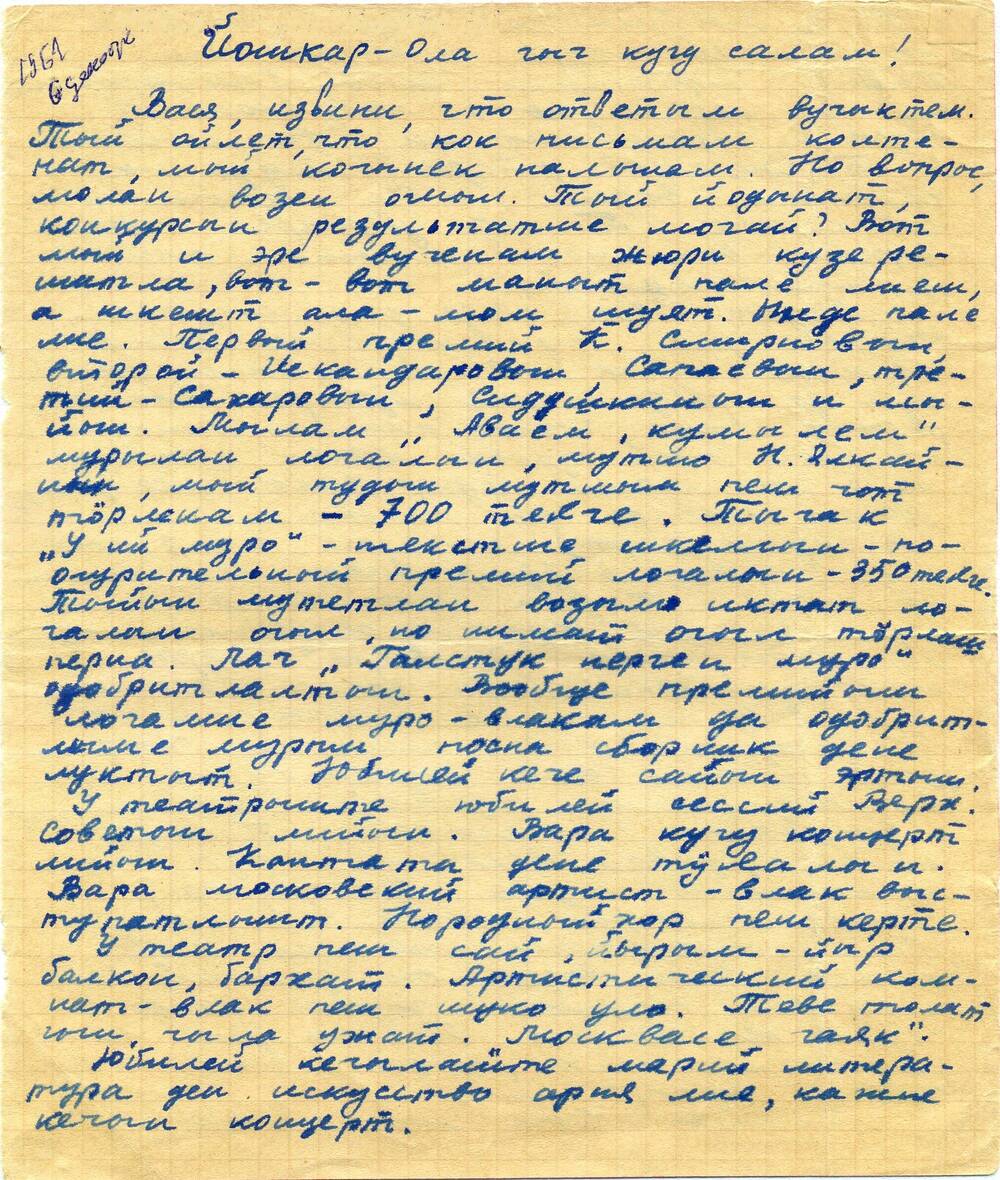 1961
6 декабрь
Йошкар-Ола гыч кугу салам!
Вася, извини, что ответым вучыктем.
Тый ойлет, что кок письмам колте-
нат, мый кочынек нальшам. Но вопрос,
молан возен омыл. Тый йодынат,
конкурсын результатше могай? Вот
мый и эре вученам жюри кузе ре-
шитла, вот-вот маныт пале лиеш,
а шкешт ала-мом шуят. Ынде пале
лие. Первый премий К. Смирновын,
второй - Искандаровын, Сапаевын, тре-
тий - Сахаровын, Сидушкинын и мы-
йын. Мылам „Аваем, кумылем"
мурылан логалын, мутшо Н. Ялкай-
нын, мый тудын мутшым пеш чот
тӧрленам - 700 теҥге. Тыгак
„У ий муро" - текстше шкемын - по-
ощрительный премий логалын - 350 теҥге.
Тыйын мутетлан возымо иктат ло-
галын огыл, но нимат огыл тӧрлаш
перна. Лач „Галстук нерген муро"
одобритлалтын. Вообще премийым
логалше муро-влакым да одобрит-
лыме мурым посна сборник дене
луктыт. Юбилей кече сайын эртыш.
У театрыште юбилей сессий Верх.
Советын лийын. Вара кугу концерт
лийын. Кантата дене тӱҥалын.
Вара московский артист-влак выс-
тупатлышт. Народный хор пеш керте.
У театр пеш сай, йырым-йыр
балкон, бархат. Артистический ком-
нат-влак пеш шуко уло. Теве толат
гын, чыла ужат. „Москвасе гаяк".
Юбилей кечылаште марий литера-
тура ден искусство арня лие, кажне
кечын концерт.